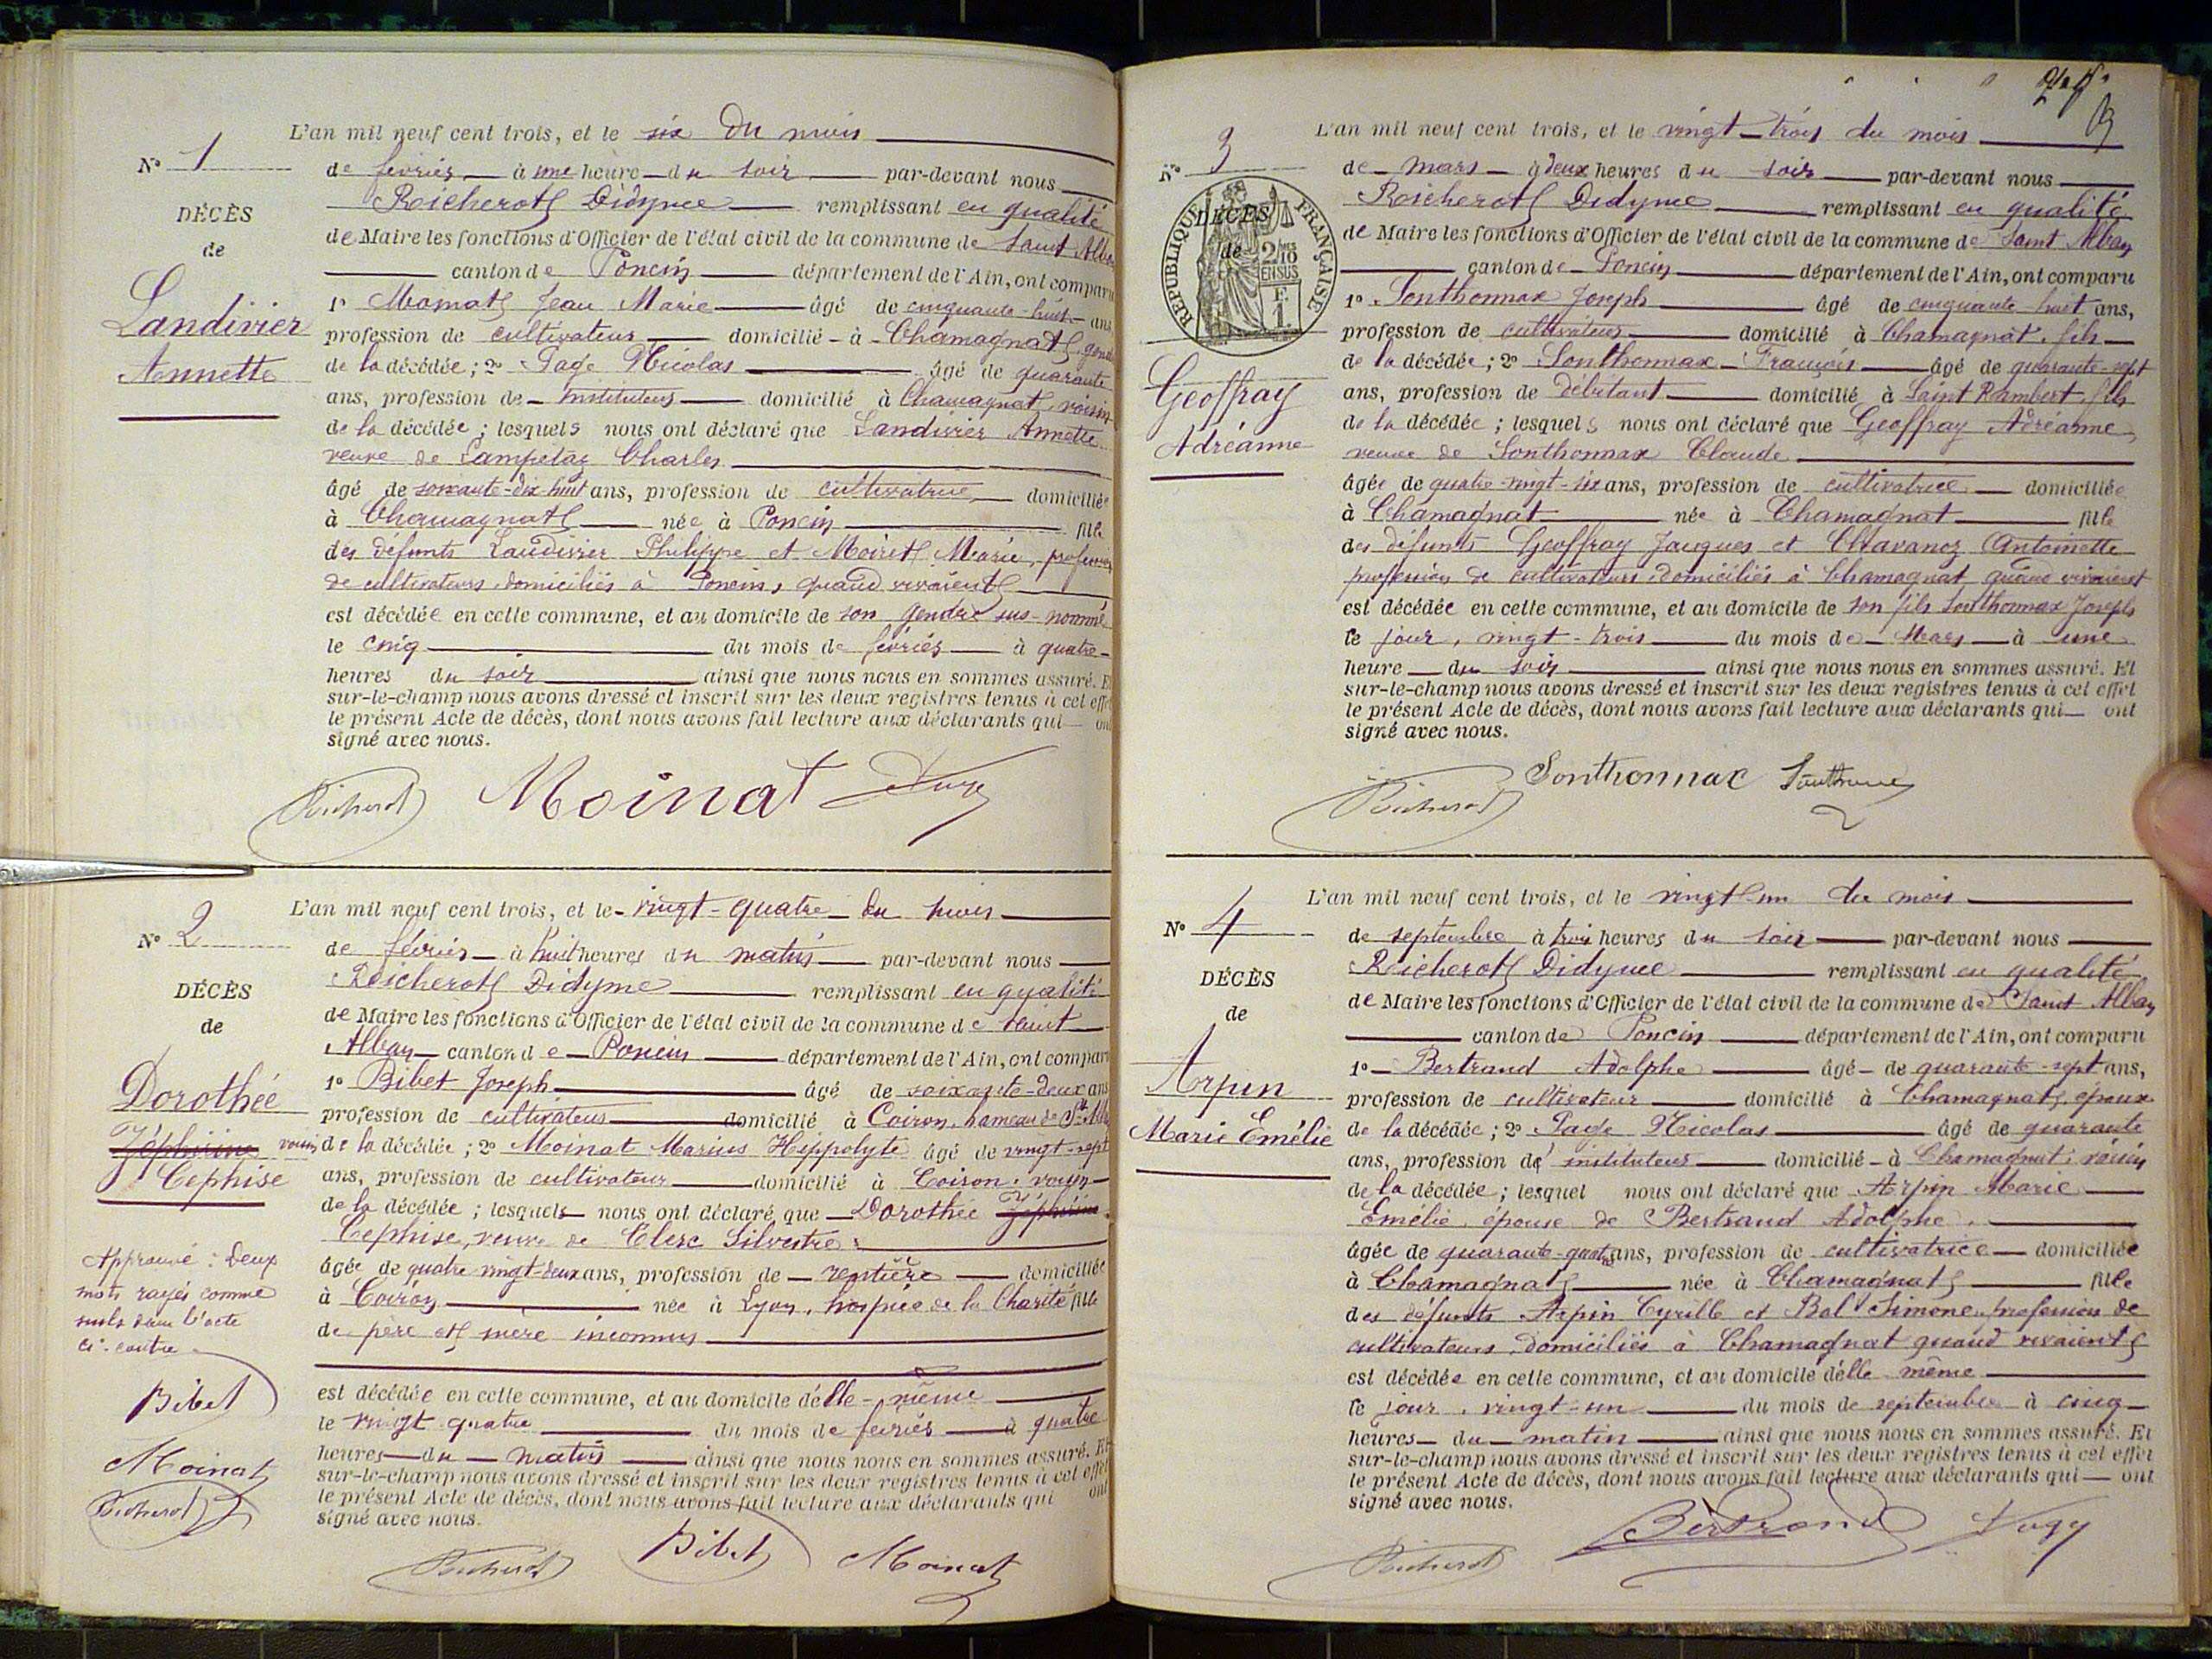 L'an mil neuf cent trois, et le six du mois
N° 1
de février à une heure du soir par-devant nous
Reicherot Didyme remplissant en qualité
DÉCÈS
de Maire les fonctions d'Officier de l'état civil de la commune de Saint Alban
de
canton de Poncin département de l'Ain, ont comparu
Landivier
1° Moinat Jean Marie âgé de cinquante-huit ans
profession de cultivateur domicilié à Chamagnat, gendre
Annette
de la décédée; 2° Page Nicolas âgé de quarante
ans, profession de instituteur domicilié à Chamagnat, voisin
de la décédée; lesquels nous ont déclaré que Landivier Annette
veuve de Charles
âgé de soixante-dix-huit ans, profession de cultivatrice domiciliée
à Chamagnat née à Poncin fille
des défunts Landivier Philippe et Moiret Marie, profession
de cultivateurs domiciliés à Poncin, quand vivaient
est décédée en cette commune, et au domicile de son gendre sus-nommé
le cinq du mois de février à quatre
heures du soir ainsi que nous nous en sommes assuré. Et
sur-le-champ nous avons dressé et inscrit sur les deux registres tenus à cet effet
le présent Acte de décès, dont nous avons fait lecture aux déclarants qui ont
signé avec nous.
Reicherot Moinat
L'an mil neuf cent trois, et le vingt-quatre du mois
N° 2
de février à huit heures du matin par-devant nous
Reicherot Didyme remplissant en qualité
DÉCÈS
de Maire les fonctions d'Officier de l'état civil de la commune de Saint
de
Alban canton de Poncin département de l'Ain, ont comparu
Dorothée
1° Bibet Joseph âgé de soixante-deux ans
profession de cultivateur domicilié à Coiron, hameau de St Alban
Zéphirine
voisin de la décédée; 2° Moinat Marius Hippolyte âgé de vingt-sept
Cephise
ans, profession de cultivateur domicilié à Coiron, voisin
de la décédée; lesquels nous ont déclaré que Dorothée Zéphirine
Cephise, veuve de Clerc Silvestre
âgée de quatre vingt-deux ans, profession de rentière domiciliée
à Coiron née à Lyon, hospice de la Charité fille
de père et mère inconnus
Approuvé: Deux
mots rayés comme
nuls dans l'acte
ci-contre
Bibet
Moinat
Reicherot
est décédée en cette commune, et au domicile d'elle-même
le vingt quatre du mois de février à quatre
heures du matin ainsi que nous nous en sommes assuré. Et
sur-le-champ nous avons dressé et inscrit sur les deux registres tenus à cet effet
le présent Acte de décès, dont nous avons fait lecture aux déclarants qui ont
signé avec nous.
Reicherot Bibet Moinat
L'an mil neuf cent trois, et le vingt-trois du mois
N° 3
de mars à deux heures du soir par-devant nous
Reicherot Didyme remplissant en qualité
DÉCÈS
de
RÉPUBLIQUE FRANÇAISE
2/10 EN SUS
F. 1.
de Maire les fonctions d'Officier de l'état civil de la commune de Saint Alban
canton de Poncin département de l'Ain, ont comparu
1° Sonthonnax Joseph âgé de cinquante huit ans,
profession de cultivateur domicilié à Chamagnat, fils
Geoffray
Adréanne
de la décédée; 2° Sonthonnax François âgé de quarante-sept
ans, profession de débitant domicilié à Saint Rambert, fils
de la décédée; lesquels nous ont déclaré que Geoffray Adréanne,
veuve de Sonthonnax Claude
âgée de quatre-vingt-six ans, profession de cultivatrice domiciliée
à Chamagnat née à Chamagnat fille
des défunts Geoffray Jacques et Chavanoz Antoinette
profession de cultivateurs domiciliés à Chamagnat quand vivaient
est décédée en cette commune, et au domicile de son fils Sonthonnax Joseph
le jour, vingt-trois du mois de Mars à une
heure du soir ainsi que nous nous en sommes assuré. Et
sur-le-champ nous avons dressé et inscrit sur les deux registres tenus à cet effet
le présent Acte de décès, dont nous avons fait lecture aux déclarants qui ont
signé avec nous.
Reicherot Sonthonnax
L'an mil neuf cent trois, et le vingt-un du mois
N° 4
de septembre à trois heures du soir par-devant nous
Reicherot Didyme remplissant en qualité
DÉCÈS
de Maire les fonctions d'Officier de l'état civil de la commune de Saint Alban
de
canton de Poncin département de l'Ain, ont comparu
Arpin
1° Bertrand Adolphe âgé de quarante-sept ans,
profession de cultivateur domicilié à Chamagnat, époux
Marie Emélie
de la décédée; 2° Page Nicolas âgé de quarante
ans, profession de instituteur domicilié à Chamagnat, voisin
de la décédée; lesquel nous ont déclaré que Arpin Marie
Emélie, épouse de Bertrand Adolphe,
âgée de quarante-quatre ans, profession de cultivatrice domiciliée
à Chamagnat née à Chamagnat fille
des défunts Arpin Cyrille et Bal Simone, profession de
cultivateurs, domiciliés à Chamagnat quand vivaient
est décédée en cette commune, et au domicile d'elle même
le jour, vingt-un du mois de septembre à cinq
heures du matin ainsi que nous nous en sommes assuré. Et
sur-le-champ nous avons dressé et inscrit sur les deux registres tenus à cet effet
le présent Acte de décès, dont nous avons fait lecture aux déclarants qui ont
signé avec nous.
Reicherot Bertrand